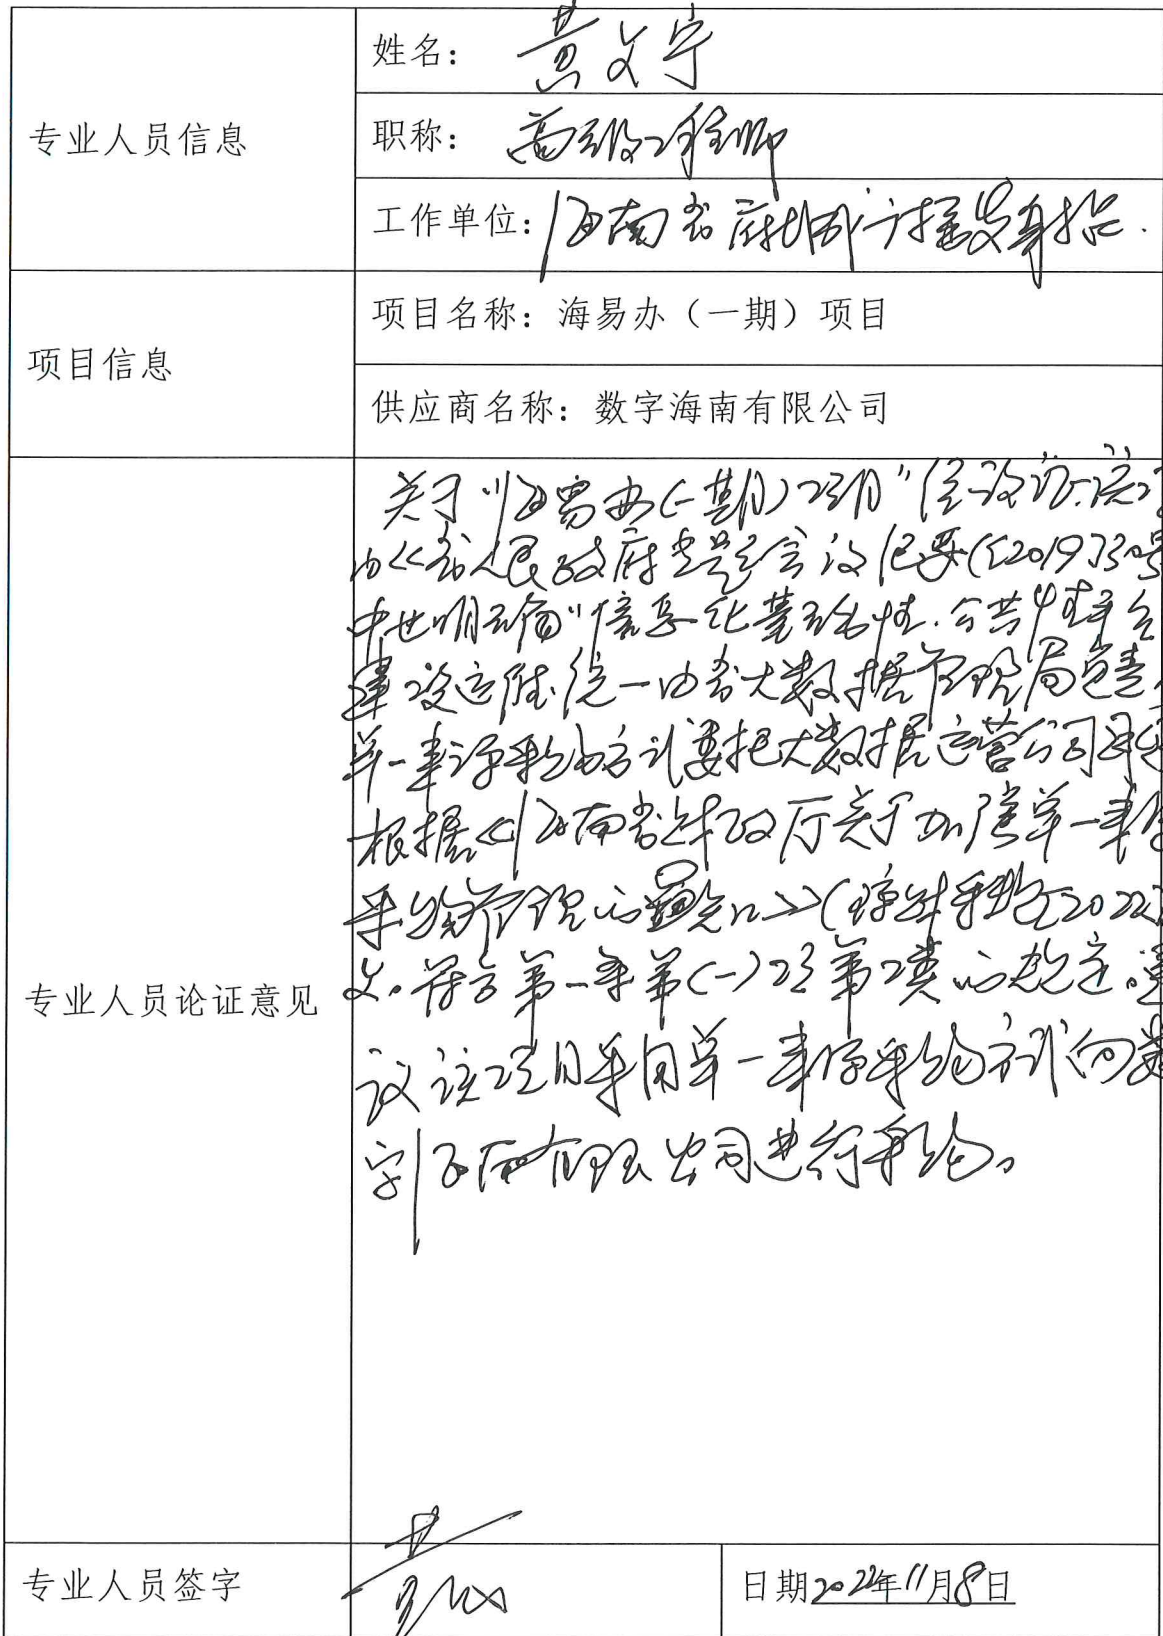 专业人员信息
姓名：黄文宁
职称：高级工程师
工作单位：海南省府城广播发射台.
项目信息
项目名称：海易办（一期）项目
供应商名称：数字海南有限公司
专业人员论证意见
关于“海易办(一期)项目”经论证,该
的《省人民政府专题会议纪要》(〔2019〕30号
中也明确“信息化基础性.公共性平台
建设运维,统一由省大数据管理局负责,
单一来源采购方式委托大数据运营公司承
根据《海南省财政厅关于加强单一来
采购管理的通知》(琼财采〔2022〕
文。符合第一条第(一)项第2类的规定。建
议该项目采用单一来源采购方式向数
字海南有限公司进行采购。
专业人员签字
日期2022年11月8日